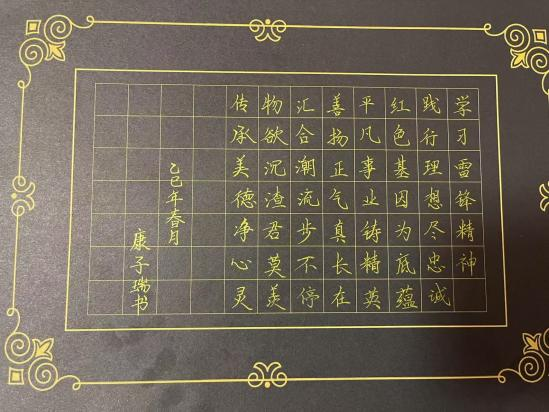 学习雷锋精神
践行理想尽忠诚
红色基因为底蕴
平凡事业铸精英
善扬正气真长在
汇合潮流步不停
物欲沉渣君莫羡
传承美德净心灵
乙巳年春月
康子瑞书